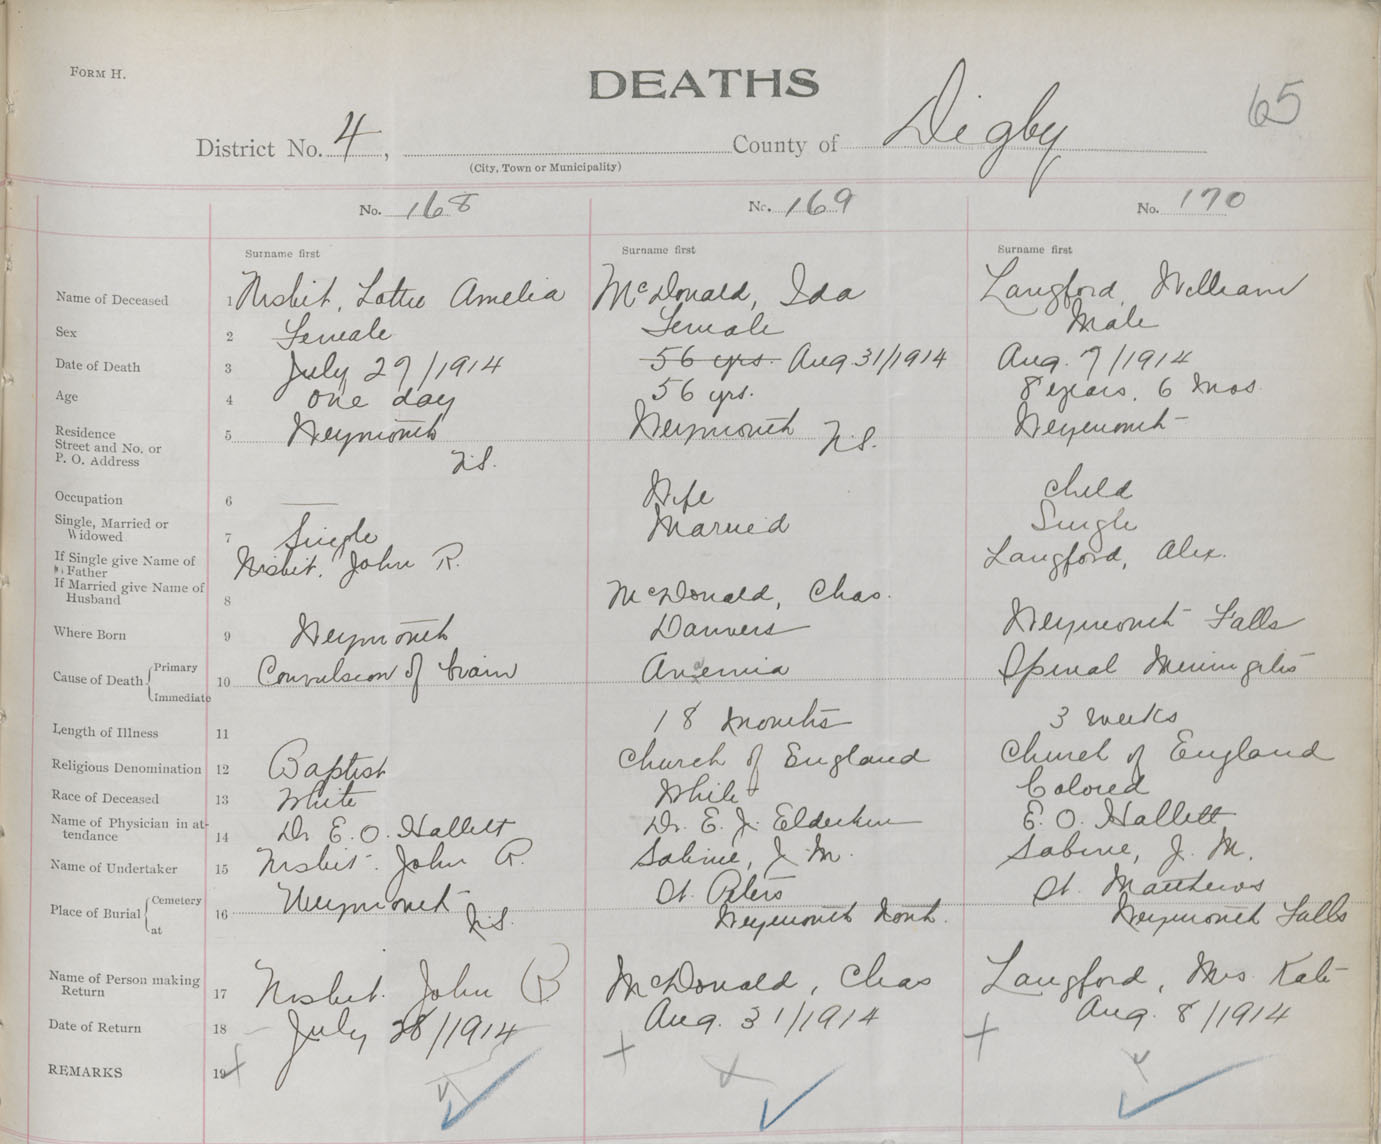 FORM H.
DEATHS
65
District No. 4, County of Digby
(City, Town or Municipality)
No. 168 No. 169 No. 170
Surname first Surname first Surname first
Name of Deceased 1 Nisbit, Lottie Amelia McDonald, Ida Langford, William
Sex 2 Female Female Male
Date of Death 3 July 27/1914 56 yrs. Aug 31/1914 Aug. 7/1914
Age 4 one day 56 yrs. 8 years, 6 mos.
Residence Street and No. or P. O. Address 5 Weymouth N.S. Weymouth N.S. Weymouth
Occupation 6 — Wife child
Single, Married or Widowed 7 Single Married Single
If Single give Name of Father Nisbit, John R. Langford, Alex.
If Married give Name of Husband 8 McDonald, Chas.
Where Born 9 Weymouth Danvers Weymouth Falls
Cause of Death Primary Immediate 10 Convulsion of brain Anaemia Spinal Meningitis
Length of Illness 11 18 months 3 weeks
Religious Denomination 12 Baptist Church of England Church of England
Race of Deceased 13 White White Colored
Name of Physician in attendance 14 Dr. E. O. Hallett Dr. E. J. Elderkin E. O. Hallett
Name of Undertaker 15 Nisbit, John R. Sabine, J. M. Sabine, J. M.
Place of Burial Cemetery at 16 Weymouth N.S. St. Peters Weymouth North. St. Matthews Weymouth Falls
Name of Person making Return 17 Nisbit, John R McDonald, Chas Langford, Mrs. Kate
Date of Return 18 July 28/1914 Aug. 31/1914 Aug. 8/1914
REMARKS 19